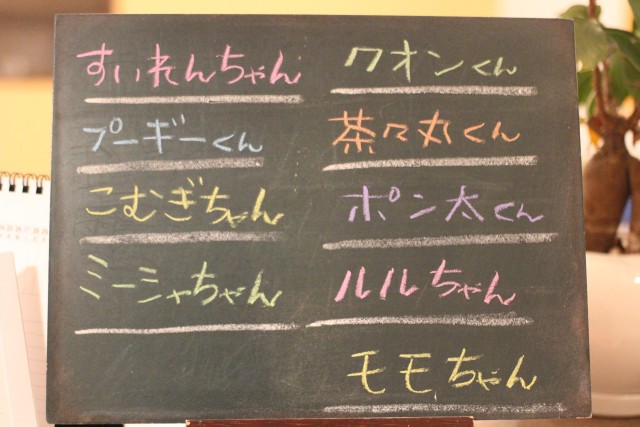 すいれんちゃん
プーギーくん
こむぎちゃん
ミーシャちゃん
クオンくん
茶々丸くん
ポン太くん
ルルちゃん
モモちゃん